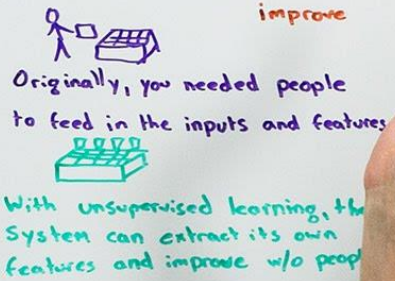 improve
Originally, you needed people
to feed in the inputs and features
With unsupervised learning, the
System can extract its own
features and improve w/o peopl